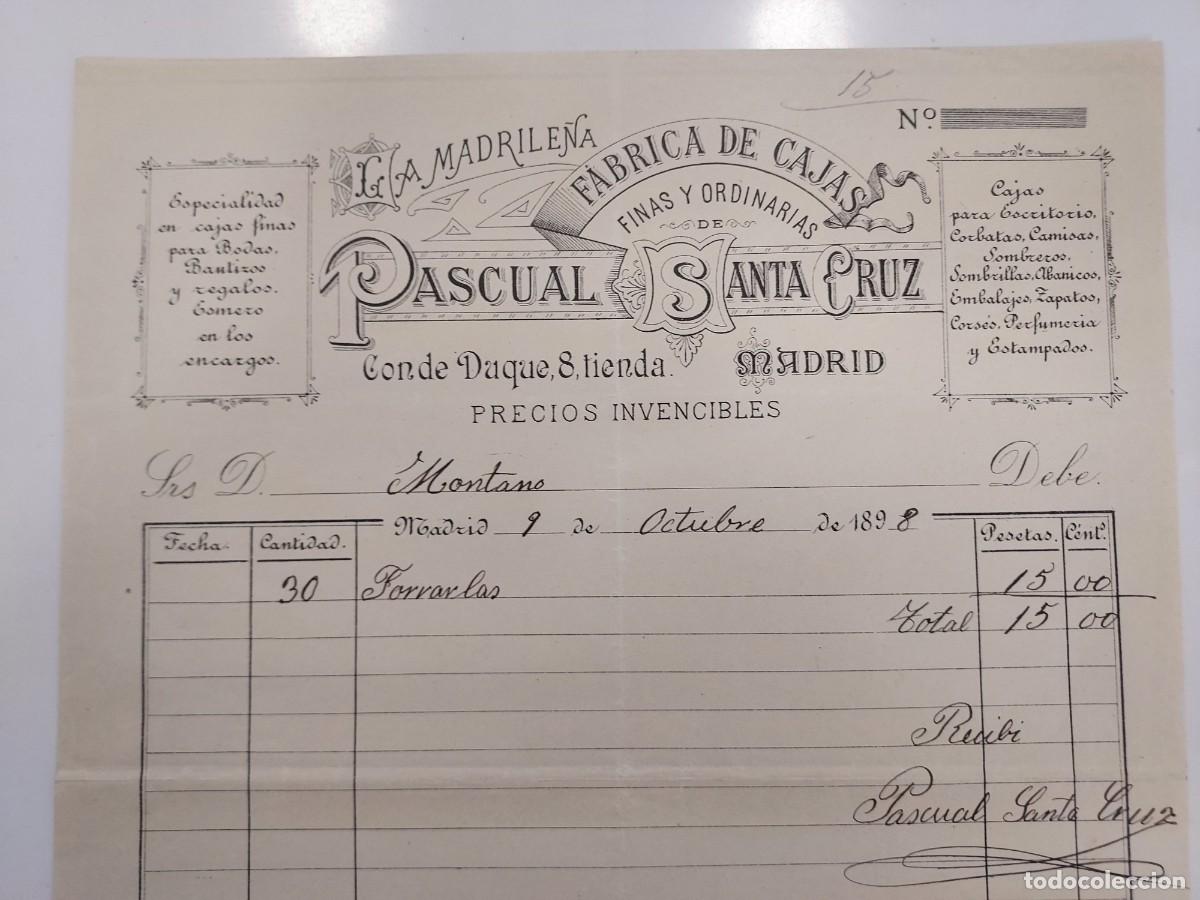 15
Nº
LA MADRILEÑA
FÁBRICA DE CAJAS
FINAS Y ORDINARIAS
DE
PASCUAL SANTA CRUZ
Conde Duque, 8, tienda. MADRID
PRECIOS INVENCIBLES
Especialidad
en cajas finas
para Bodas,
Bautizos
y regalos.
Esmero
en los
encargos.
Cajas
para Escritorio,
Corbatas, Camisas,
Sombreros,
Sombrillas, Abanicos,
Embalajes, Zapatos,
Corsés, Perfumeria
y Estampados.
Srs D. Montano Debe.
Madrid 9 de Octubre de 1898
Fecha. Cantidad. Pesetas. Centˢ.
30 Forrarlas 15 00
Total 15 00
Recibi
Pascual Santa Cruz
todocoleccion